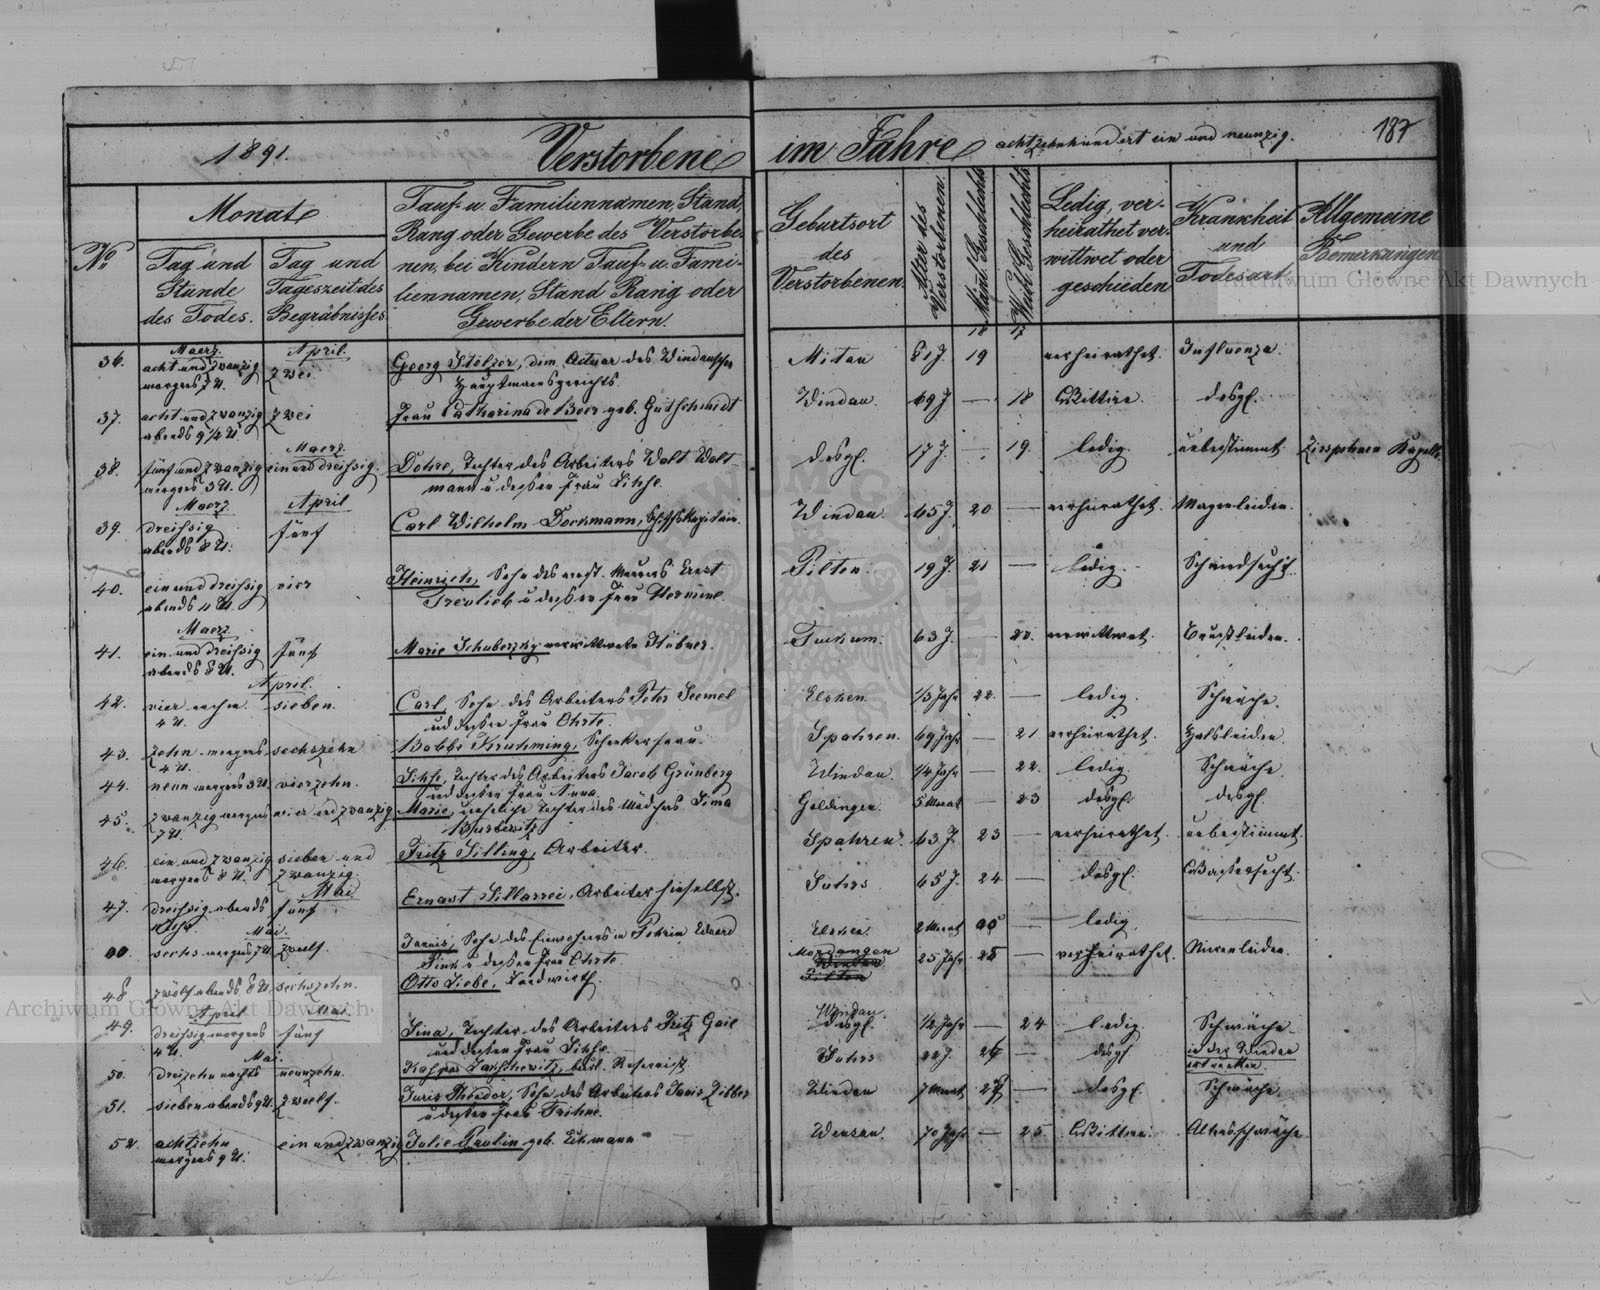 1891.
Verstorbene im Jahre achtzehnhundert ein und neunzig.
187
No
Monat
Tag und Stunde des Todes.
Tag und Tageszeit des Begräbnisses
Tauf- u. Familiennamen, Stand,
Rang oder Gewerbe des Verstorbe-
nen, bei Kindern Tauf- u. Fami-
liennamen, Stand Rang oder
Gewerbe der Eltern.
Geburtsort
des
Verstorbenen.
Alter des Verstorbenen
Männl. Geschlechts
Weibl. Geschlechts
Ledig, ver-
heirathet ver-
wittwet oder
geschieden
Krankheit
und
Todesart
Allgemeine
Bemerkungen
18 17
Maerz. April.
36. acht und zwanzig zwei Georg Stelzer, dim. Actuar des Windauschen Mitau 61 J. 19 verheirathet. Influenza.
morgens 7 U. Hauptmannsgerichts.
37. acht und zwanzig zwei Frau Catharina de Boer geb. Gutschmidt Windau. 69 J. — 18 Wittwe desgl.
abends 9 1/2 U.
Maerz
38. fünf und zwanzig ein und dreissig. Dohre, Tochter des Arbeiters Walt Walt- desgl. 17 J. — 19. ledig. unbestimmt
morgens 3 U. mann u dessen Frau Lihse.
Maerz April
39. dreissig fünf Carl Wilhelm Dorkmann, Schiffskapitain. Windau. 65 J. 20 — verheirathet. Magenleiden.
abends 8 U.
40. ein und dreissig vier Heinrich, Sohn des verst. Ernst Pilten. 19 J. 21 — ledig. Schwindsucht.
abends 11 U. u dessen Frau Hermine.
Maerz
41. ein und dreissig fünf Marie verwittwete Hübner. Tuckum. 63 J. — 20. verwittwet. Brustleiden.
abends 8 U.
April.
42. vier sieben. Carl, Sohn des Arbeiters Peter Seemel 1/3 Jahr 22. — ledig. Schwäche.
4 U. und dessen Frau Ohrte.
43. zehn morgens sechszehn Babbe Kruhming, Spahren. 69 Jahr — 21 verheirathet. Halsleiden.
4 U.
44. neun morgens 3 U. vierzehn. Lihse, Tochter des Arbeiters Jacob Grünberg Windau. 1/4 Jahr — 22. ledig. Schwäche.
und dessen Frau Anna.
45. zwanzig morgens vier und zwanzig Marie, uneheliche Tochter des Mädchens Lina Goldingen. 5 Monat — 23 desgl. desgl.
7 U.
46. ein und zwanzig sieben und Fritz Silling, Arbeiter. Spahren. 63 J. 23 — verheirathet. unbestimmt.
morgens 8 U. zwanzig.
Mai
47. dreissig abends fünf Ernast Arbeiter hieselbst. 65 J. 24 — desgl. Wassersucht.
Mai.
00. sechs morgens 7 U. zwoelf. Jannis, Sohn des Einwohners in Eduard 2 Monat 00 — ledig.
Sink u dessen Frau Ohrte.
48 zwölf abends 8 U. sechszehn. Otto Siebe, Landwirth. Windau Pilten 25 Jahr 25 — verheirathet. Nierenleiden.
April Mai.
49. dreissig morgens fünf Lina, Tochter des Arbeiters Fritz Gail Windau. desgl. 1/2 Jahr — 24 ledig. Schwäche
4 U. und dessen Frau Lihse.
Mai.
50. dreizehn nachts neunzehn. Reservist. 22 J. 26 — desgl in der Windau ertrunken.
51. sieben abends 9 U. zwoelf. Juris Theodor, Sohn des Arbeiters Janis Zibber Windau 7 Monat 27 — desgl. Schwäche.
u dessen Frau Trihne.
52. achtzehn ein und zwanzig Julie Paulin geb. Uhmann 70 Jahr — 25 Wittwe. Altersschwäche
morgens 9 U.
Archiwum Główne Akt Dawnych
Archiwum Główne Akt Dawnych